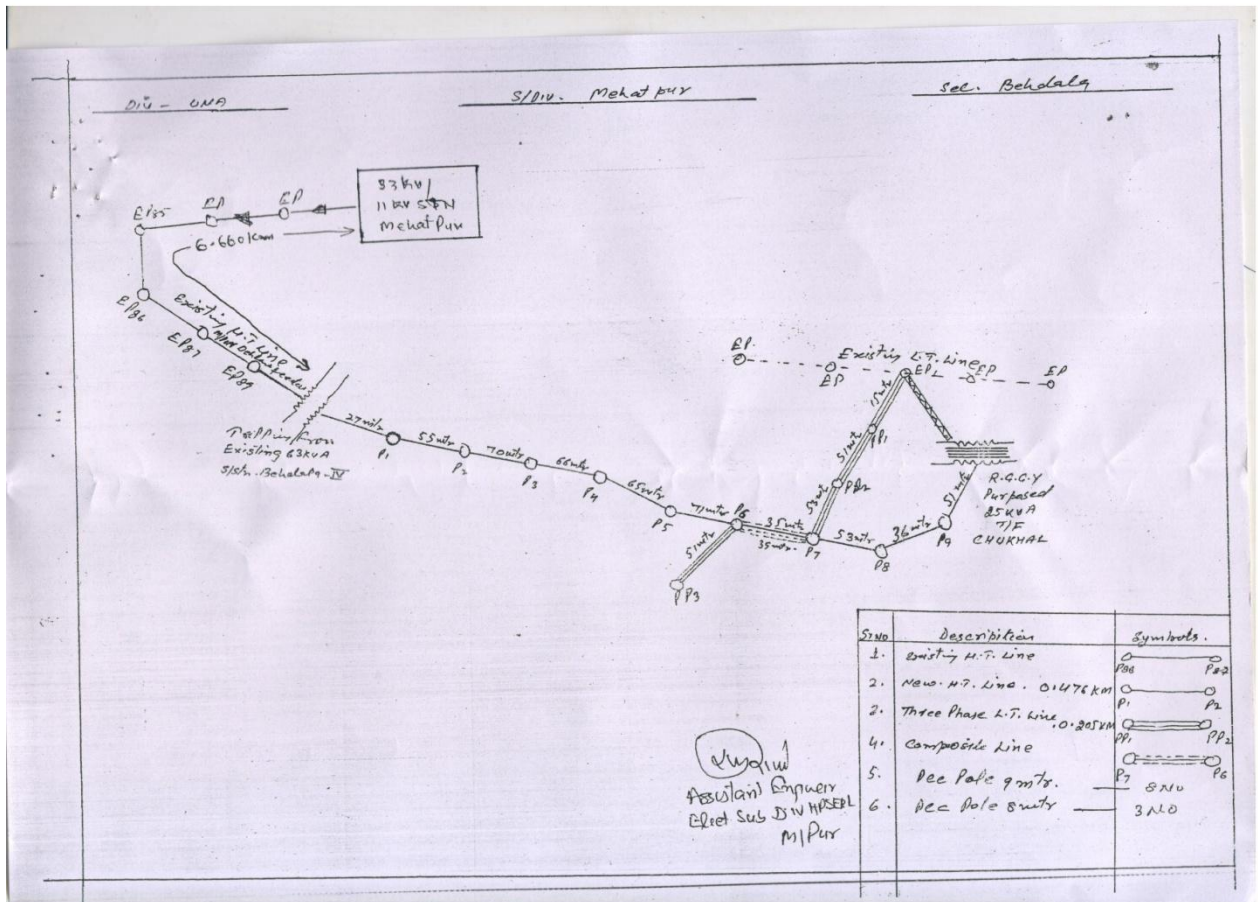 DIV - UNA
S/DIV. Mehatpur
Sec. Behdala
33 KV/
11 KV S/STN
Mehatpur
EP85
EP
EP
6.660 Km
EP86
EP87
EP89
Existing H.T. Line
Tapping from
Existing 63KVA
S/Stn. Behdala-IV
27 mtr
P1
55 mtr
P2
70 mtr
P3
66 mtr
P4
65 mtr
P5
71 mtr
P6
35 mtr
35 mtr.
P7
53 mtr
P8
36 mtr
P9
51 mtr
51 mtr
PP3
53 mtr
PP2
51 mtr
PP1
15 mtr
EP1
EP.
EP
Existing L.T. Line
EP
EP
R.G.G.Y
Purposed
25 KVA
T/F
CHUKHAL
Sr No
Descripition
Symbols.
1.
Existing H.T. Line
P86
P87
2.
New. H.T. Line. 0.476 KM
P1
P2
3.
Three Phase L.T. Line 0.205 KM
PP1
PP2
4.
Composite Line
P7
P6
5.
Pcc Pole 9 mtr.
8 NO
6.
Pcc Pole 8 mtr
3 NO
Assistant Engineer
Elect Sub Div HPSEBL
M/Pur